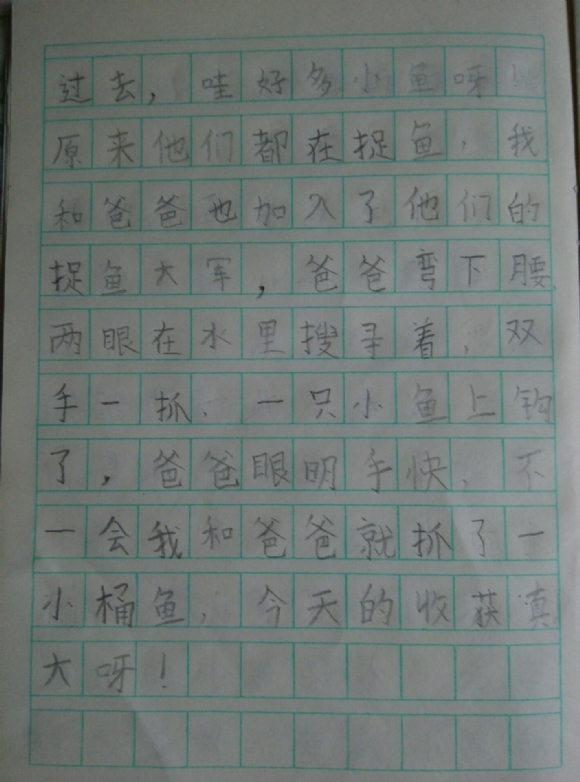 过去，哇好多小鱼呀
原来他们都在捉鱼，我
和爸爸也加入了他们的
捉鱼大军，爸爸弯下腰，
两眼在水里搜寻着，双
手一抓，一只小鱼上钩
了，爸爸眼明手快，不
一会我和爸爸就抓了一
小桶鱼，今天的收获真
大呀！